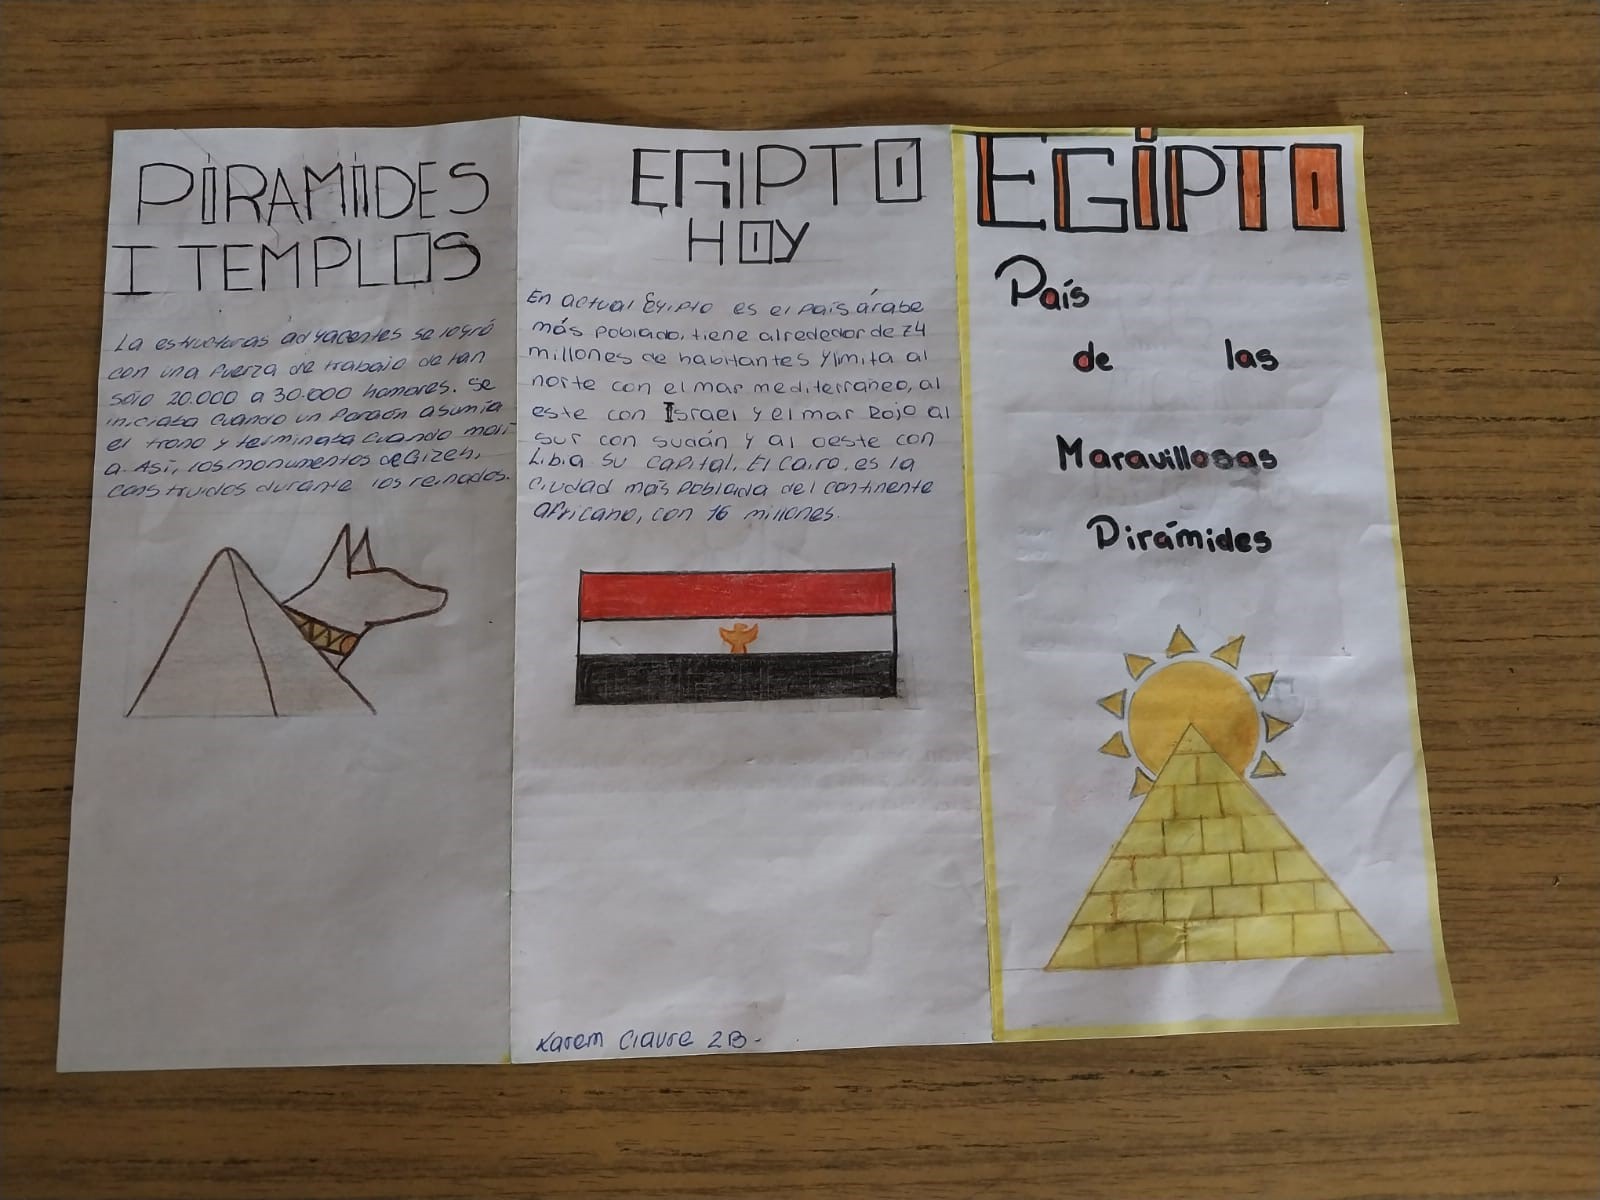 PIRAMIDES
I TEMPLOS
La estructuras adyacentes se logró
con una fuerza de trabajo de tan
sólo 20.000 a 30.000 hombres. Se
iniciaba cuando un Faraón asumía
el trono y terminaba cuando morí-
a. Así, los monumentos de Gizeh,
construidos durante los reinados.
EGIPTO
HOY
En actual Egipto es el país árabe
más poblado, tiene alrededor de 74
millones de habitantes y limita al
norte con el mar mediterraneo, al
este con Israel y el mar Rojo al
sur con sudán y al oeste con
Libia su capital, El Cairo, es la
ciudad más poblada del continente
africano, con 16 millones.
Karem Claure 2B-
EGIPTO
País
de las
Maravillosas
Pirámides